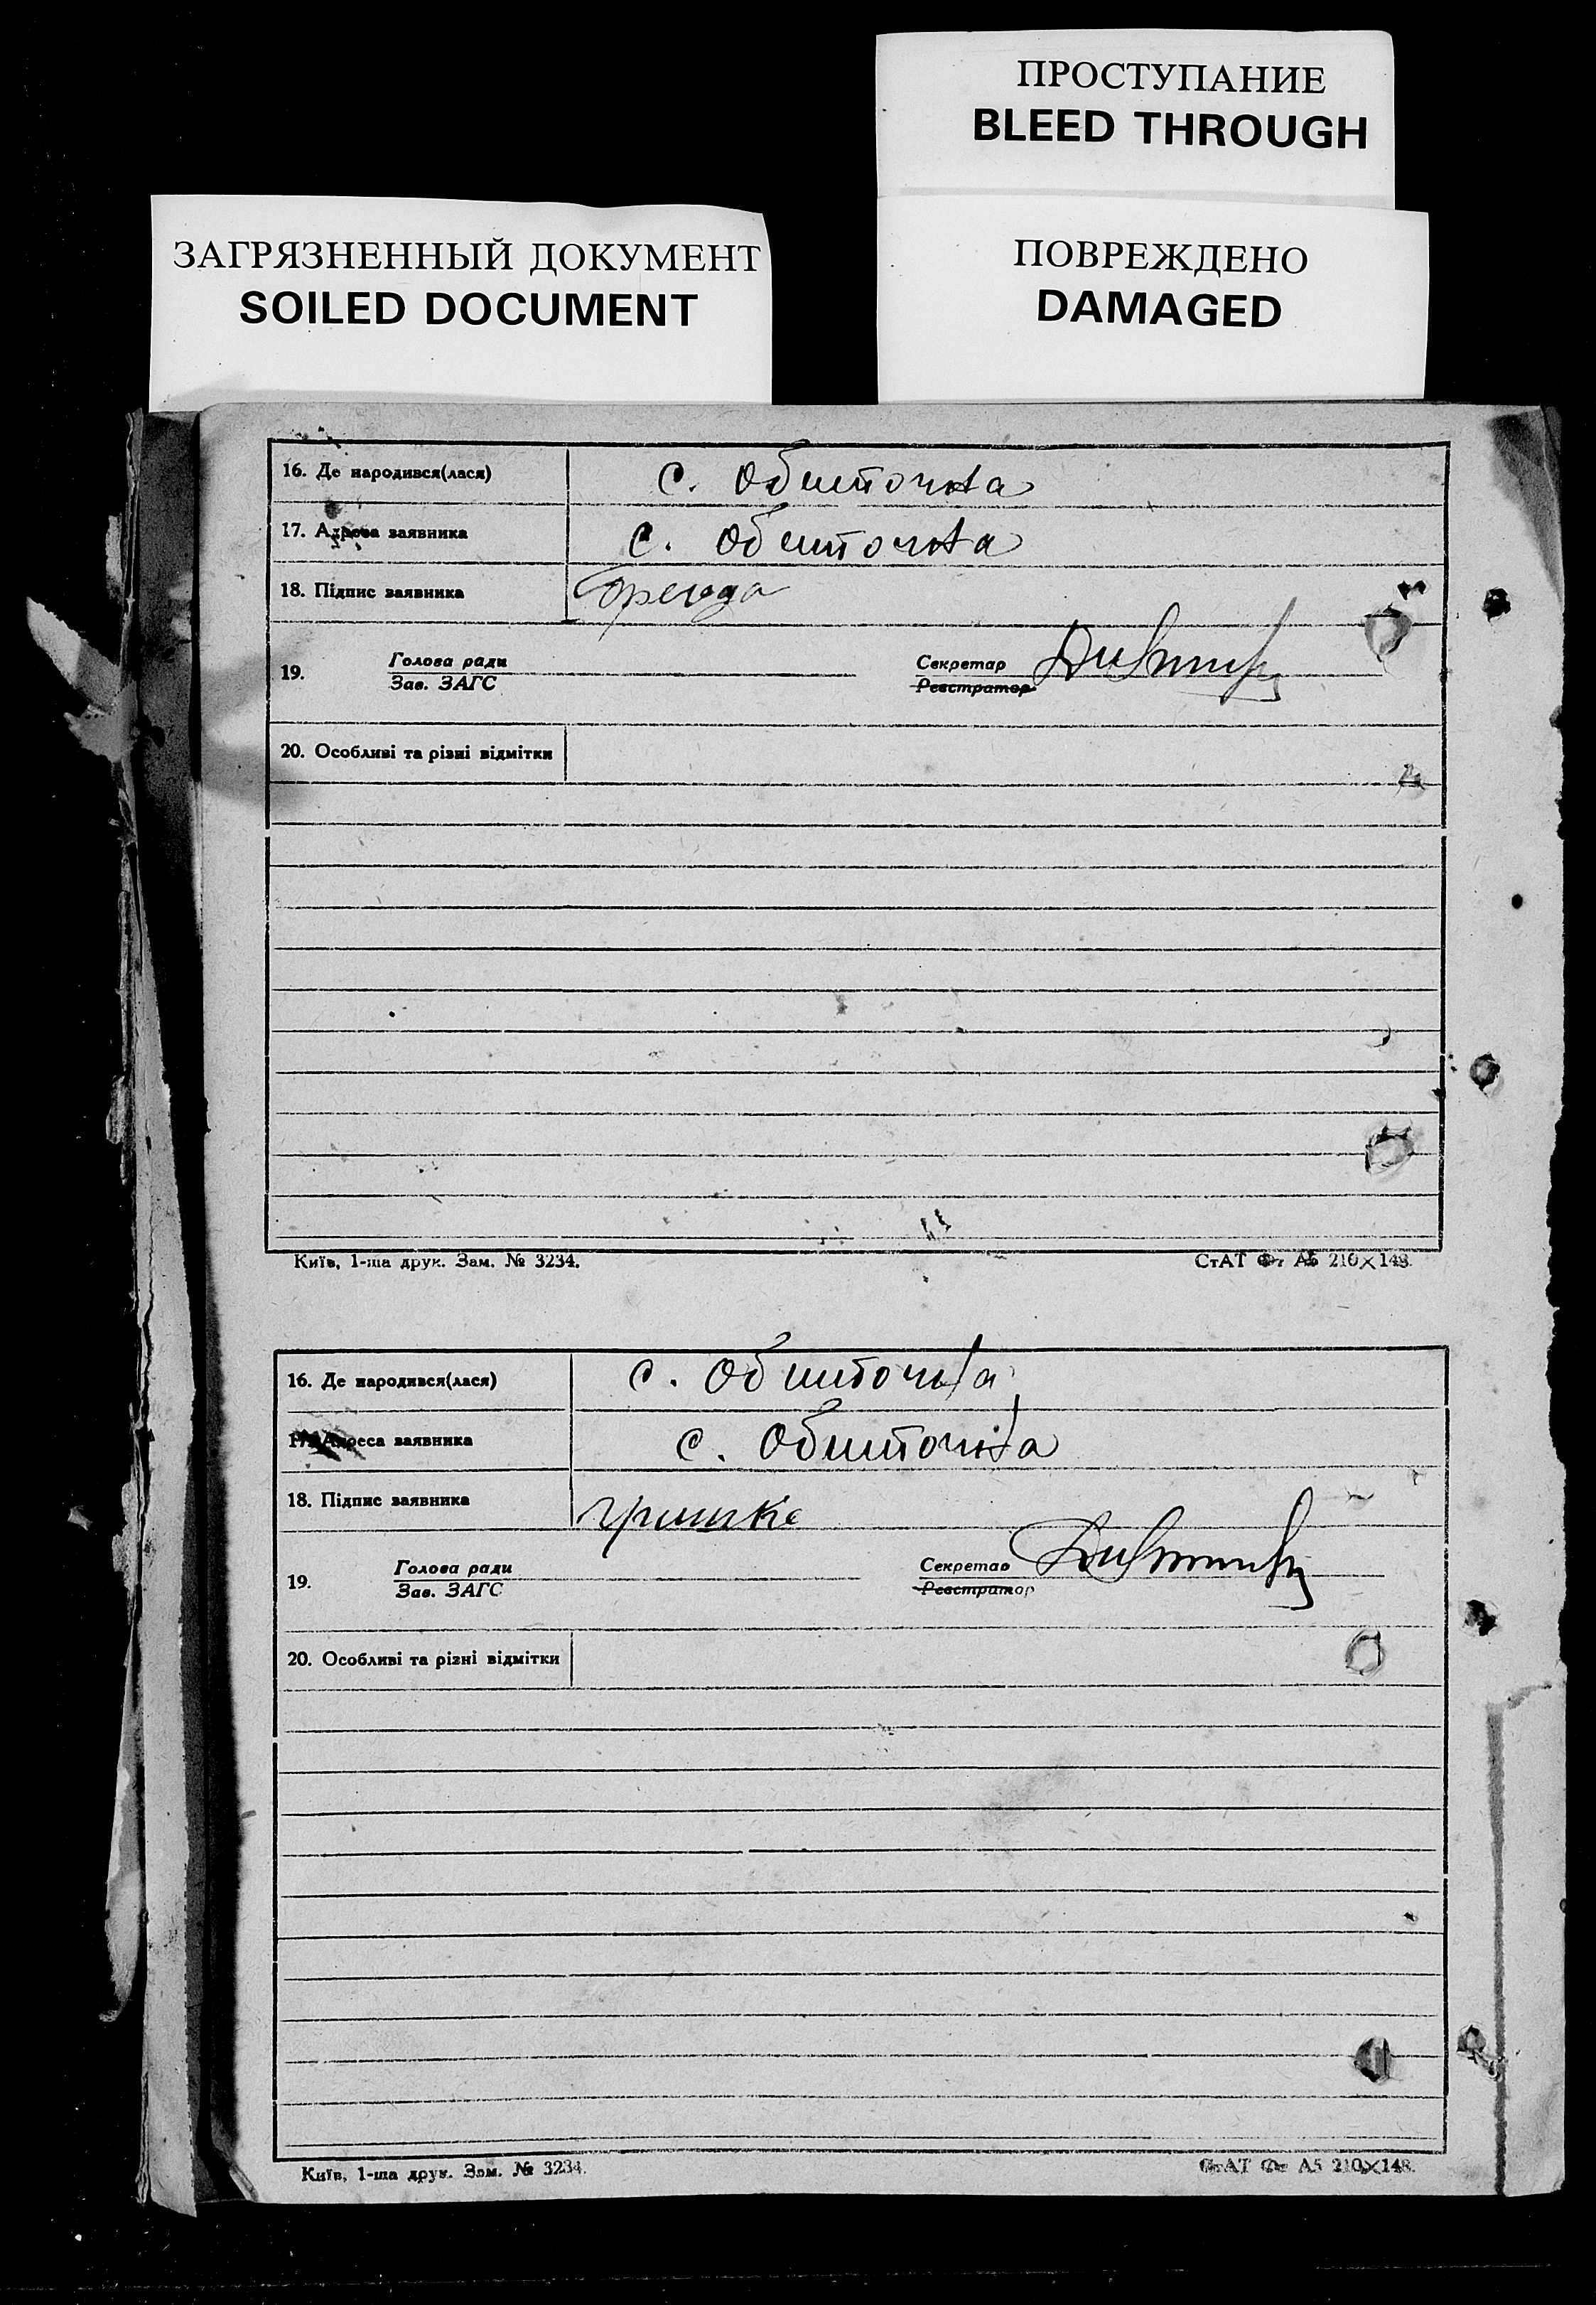 ПРОСТУПАНИЕ
BLEED THROUGH
ЗАГРЯЗНЕННЫЙ ДОКУМЕНТ
SOILED DOCUMENT
ПОВРЕЖДЕНО
DAMAGED
16. Де народився(лася) с. Обиточна
17. Адреса заявника с. Обиточна
18. Підпис заявника
19. Голова ради Секретар
Зав. ЗАГС Реєстратор
20. Особливі та різні відмітки
Київ, 1-ша друк. Зам. № 3234. СтАТ Фт А5 210×148.
16. Де народився(лася) с. Обиточна
17. Адреса заявника с. Обиточна
18. Підпис заявника
19. Голова ради Секретар
Зав. ЗАГС Реєстратор
20. Особливі та різні відмітки
Київ, 1-ша друк. Зам. № 3234. СтАТ Фт А5 210×148.